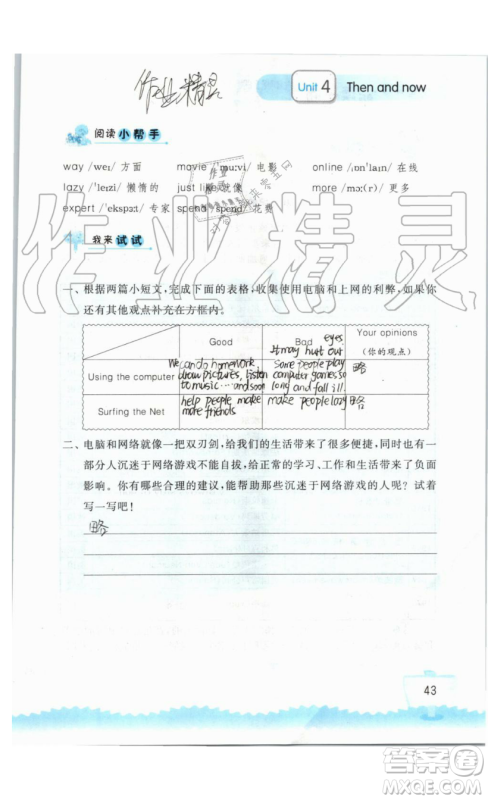 作业精灵
Unit 4 Then and now
阅读小帮手
way /weɪ/ 方面 movie /ˈmuːvi/ 电影 online /ˌɒnˈlaɪn/ 在线
lazy /ˈleɪzi/ 懒惰的 just like 就像 more /mɔː(r)/ 更多
expert /ˈekspɜːt/ 专家 spend /spend/ 花费
作业精灵
我来试试
一、根据两篇小短文,完成下面的表格,收集使用电脑和上网的利弊,如果你
还有其他观点补充在方框内:
Good Bad Your opinions
(你的观点)
Using the computer We can do homework, draw pictures, listen to music … and so on It may hurt our eyes Some people play computer games so long and fall ill. 略
Surfing the Net help people make more friends make people lazy 略
二、电脑和网络就像一把双刃剑,给我们的生活带来了很多便捷,同时也有一
部分人沉迷于网络游戏不能自拔,给正常的学习、工作和生活带来了负面
影响。你有哪些合理的建议,能帮助那些沉迷于网络游戏的人呢?试着
写一写吧!
略
43
答案圈